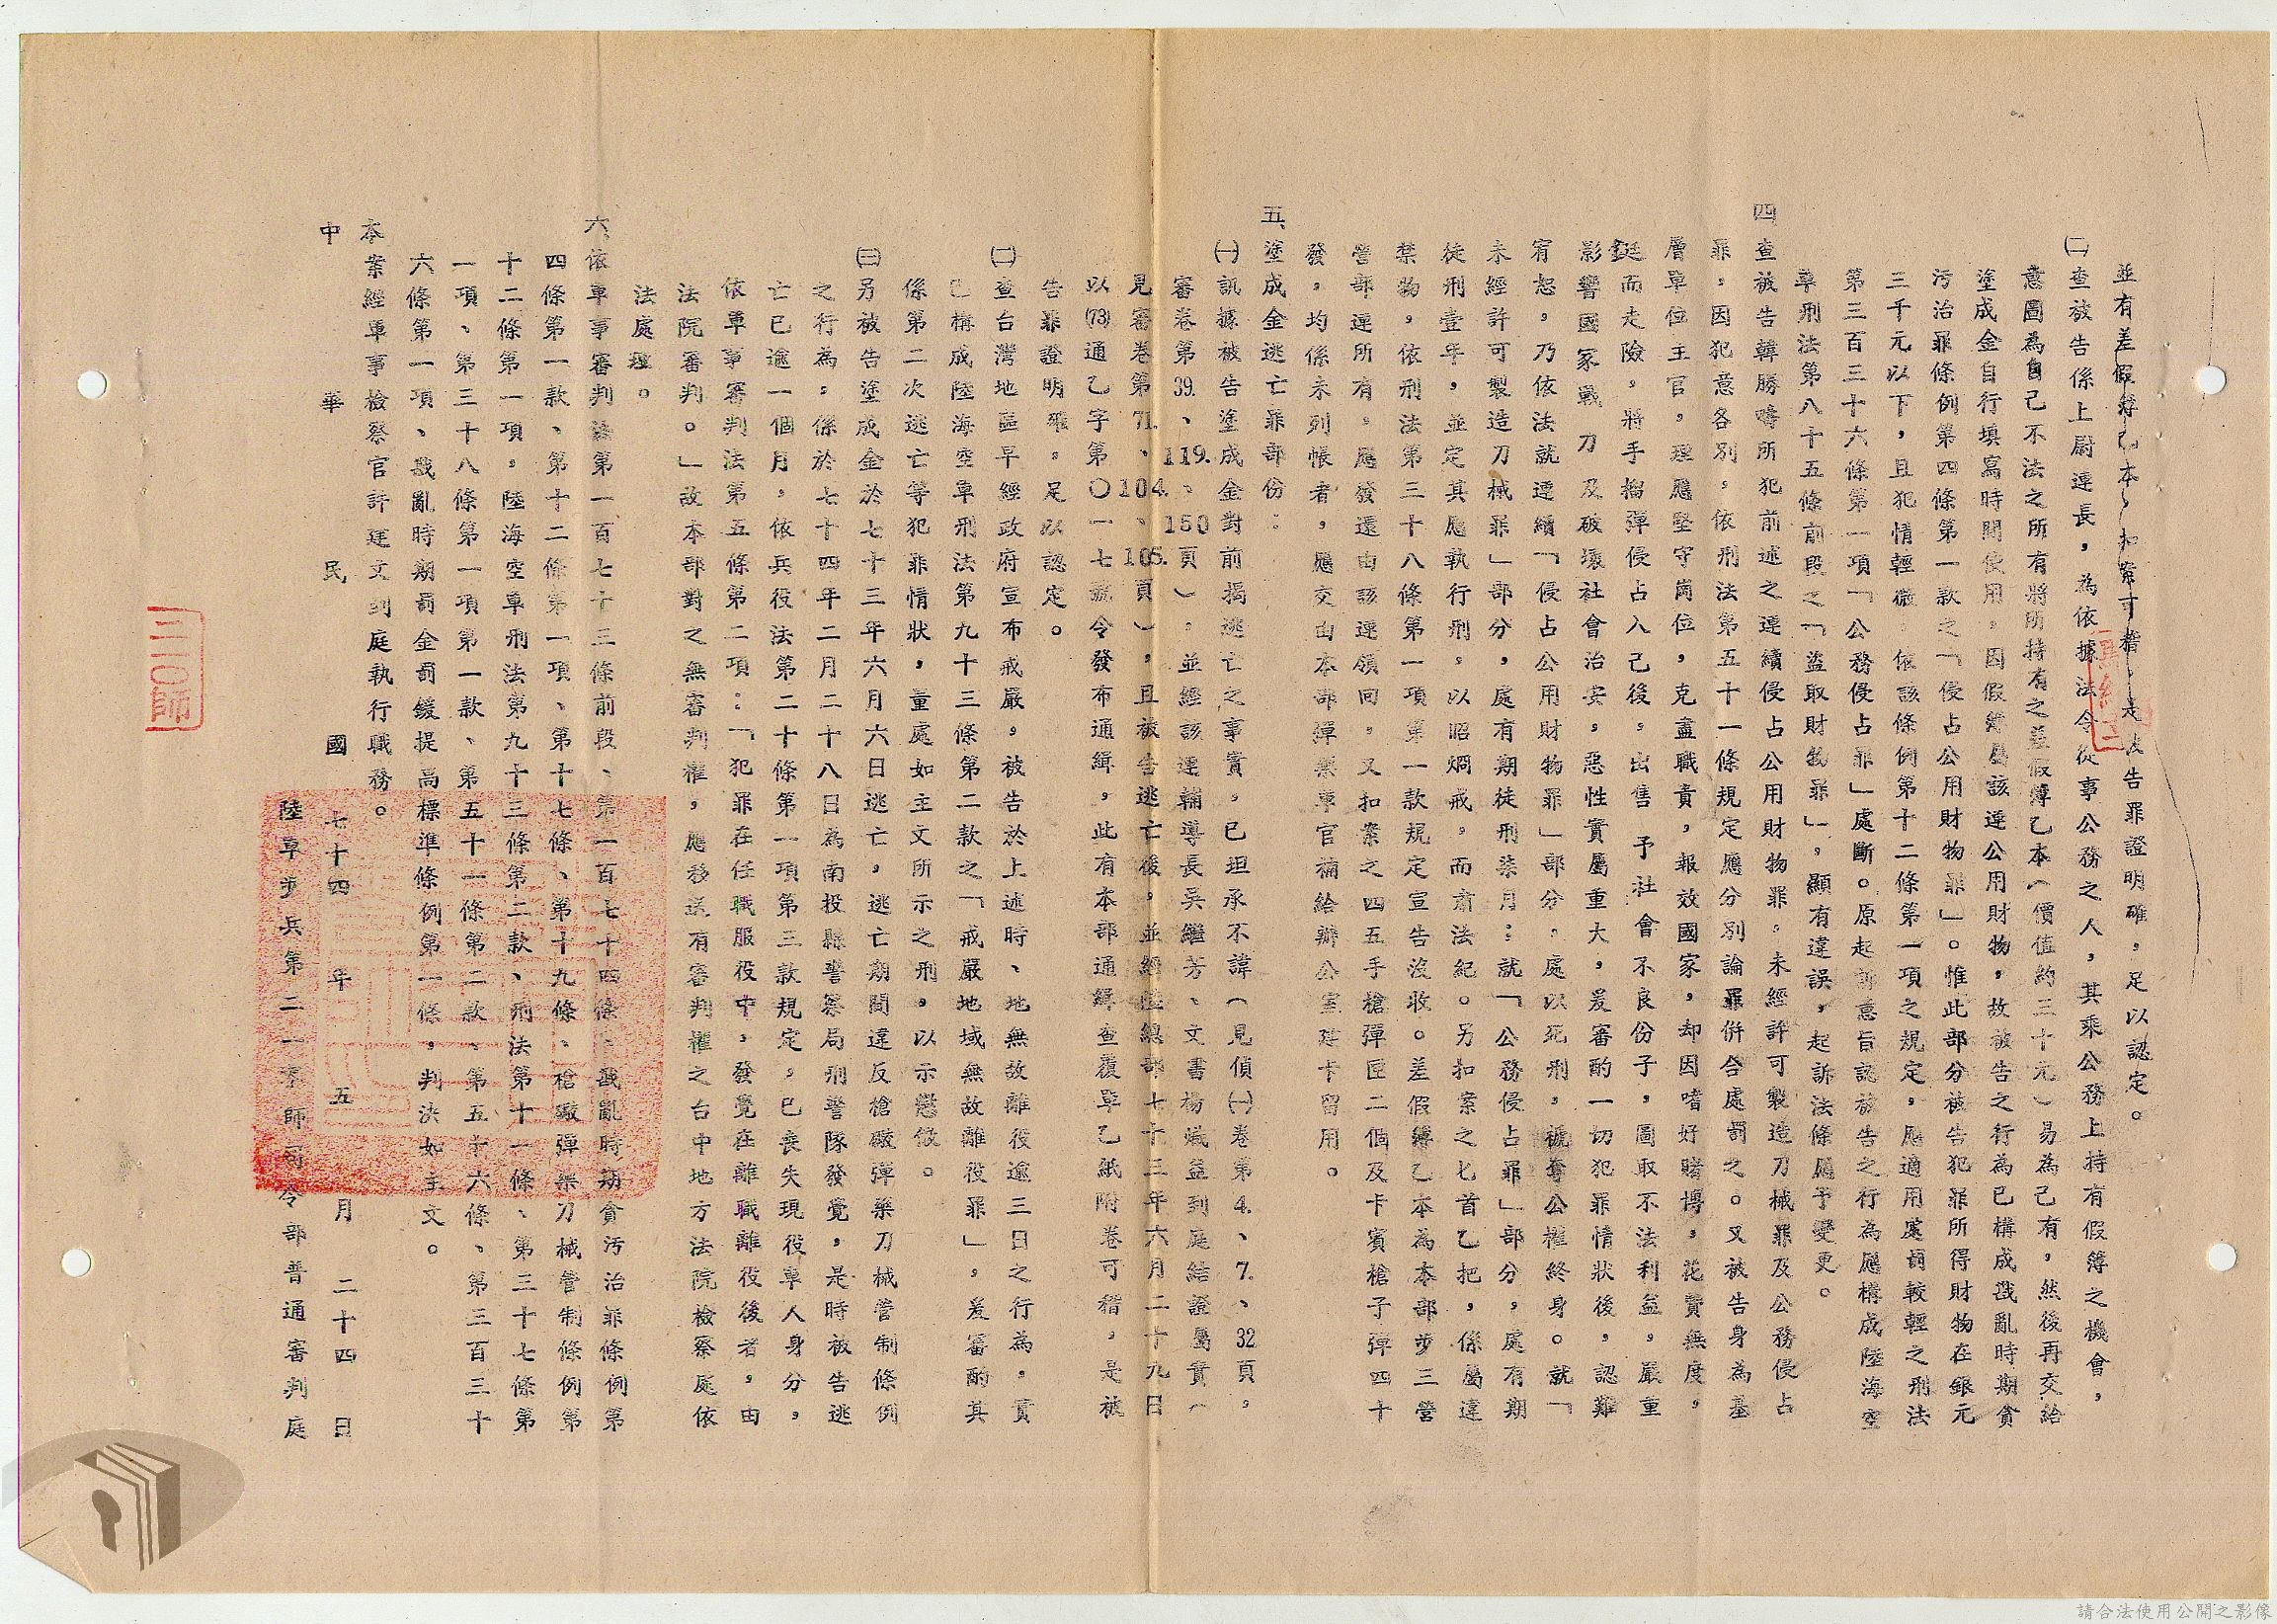 並有差假簿乙本，扣案可稽。是被告罪證明確，足以認定。
㈡查被告係上尉連長，為依據法令從事公務之人，其乘公務上持有假簿之機會，
意圖為自己不法之所有將所持有之差假簿乙本（價值約三十元）易為己有，然後再交給
塗成金自行填寫時間使用，因假簿屬該連公用財物，故被告之行為已構成戡亂時期貪
污治罪條例第四條第一款之「侵占公用財物罪」。惟此部分被告犯罪所得財物在銀元
三千元以下，且犯情輕微，依該條例第十二條第一項之規定，應適用處罰較輕之刑法
第三百三十六條第一項「公務侵占罪」處斷。原起訴意旨認被告之行為應構成陸海空
軍刑法第八十五條前段之「盜取財物罪」，顯有違誤，起訴法條應予變更。
四查被告韓勝疇所犯前述之連續侵占公用財物罪，未經許可製造刀械罪及公務侵占
罪，因犯意各別，依刑法第五十一條規定應分別論罪併合處罰之。又被告身為基
層單位主官，理應堅守崗位，克盡職責，報效國家，却因嗜好賭博，花費無度，
鋌而走險，將手榴彈侵占入己後，出售予社會不良份子，圖取不法利益，嚴重
影響國家戰力及破壞社會治安，惡性實屬重大，爰審酌一切犯罪情狀後，認難
宥恕，乃依法就連續「侵占公用財物罪」部分，處以死刑，褫奪公權終身。就「
未經許可製造刀械罪」部分，處有期徒刑柒月；就「公務侵占罪」部分，處有期
徒刑壹年，並定其應執行刑，以昭烱戒，而肅法紀。另扣案之匕首乙把，係屬違
禁物，依刑法第三十八條第一項第一款規定宣告沒收。差假簿乙本為本部步三營
營部連所有，應發還由該連領回，又扣案之四五手槍彈匣二個及卡賓槍子彈四十
發，均係未列帳者，應交由本部彈藥軍官補給辦公室建卡留用。
五、塗成金逃亡罪部份：
㈠訊據被告塗成金對前揭逃亡之事實，已坦承不諱（見偵㈠卷第4.、7.、32頁，
審卷第39.、119.、150頁）。並經該連輔導長吳繼芳、文書楊熾益到庭結證屬實（
見審卷第71.、104.、105.頁），且被告逃亡後，並經陸總部七十三年六月二十九日
以(73)通乙字第〇一七號令發布通緝，此有本部通緝查覆單乙紙附卷可稽，是被
告罪證明確。足以認定。
㈡查台灣地區早經政府宣布戒嚴，被告於上述時、地無故離役逾三日之行為，實
已構成陸海空軍刑法第九十三條第二款之「戒嚴地域無故離役罪」，爰審酌其
係第二次逃亡等犯罪情狀，量處如主文所示之刑，以示懲儆。
㈢另被告塗成金於七十三年六月六日逃亡，逃亡期間違反槍礮彈藥刀械管制條例
之行為，係於七十四年二月二十八日為南投縣警察局刑警隊發覺，是時被告逃
亡已逾一個月，依兵役法第二十條第一項第三款規定，已喪失現役軍人身分，
依軍事審判法第五條第二項：「犯罪在任職服役中，發覺在離職離役後者，由
法院審判。」故本部對之無審判權，應移送有審判權之台中地方法院檢察處依
法處理。
六、依軍事審判法第一百七十三條前段、第一百七十四條、戡亂時期貪污治罪條例第
四條第一款、第十二條第一項、第十七條、第十九條、槍礮彈藥刀械管制條例第
十二條第一項，陸海空軍刑法第九十三條第二款、刑法第十一條、第三十七條第
一項、第三十八條第一項第一款、第五十一條第二款、第五十六條、第三百三十
六條第一項、戡亂時期罰金罰鍰提高標準條例第一條，判決如主文。
本案經軍事檢察官許建文到庭執行職務。
中華民國七十四年五月二十四日
陸軍步兵第二一零師司令部普通審判庭
三三〇師
請合法使用公開之影像